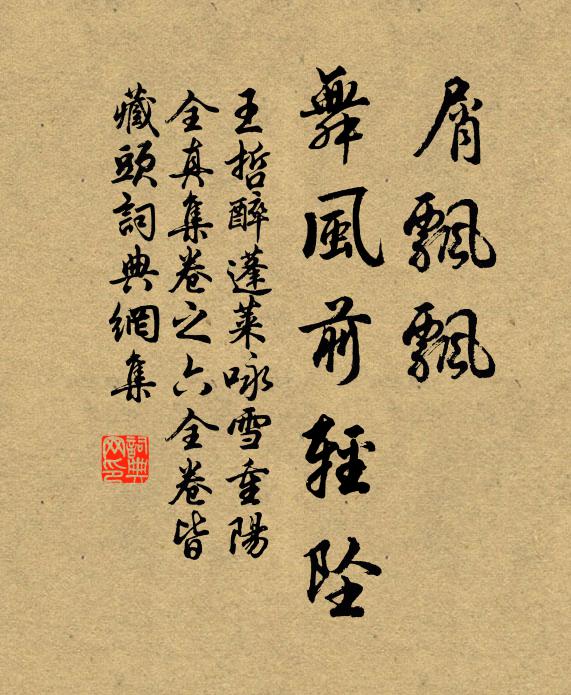 屑飄飄
舞風前輕墜
王哲醉蓬萊咏雪重陽
全真集卷之六全卷皆
藏頭詞典網集
詞典网印